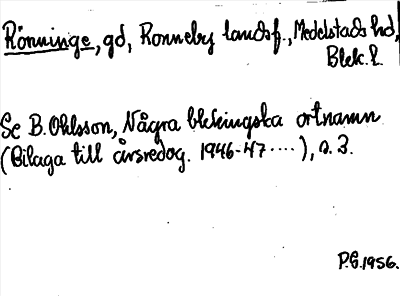 Rönninge, gd, Ronneby landsf., Medelstads hd,
Blek. l.
Se B. Ohlsson, Några blekingska ortnamn
(Bilaga till årsredog. 1946-47 ····), s. 3.
P.G. 1956.